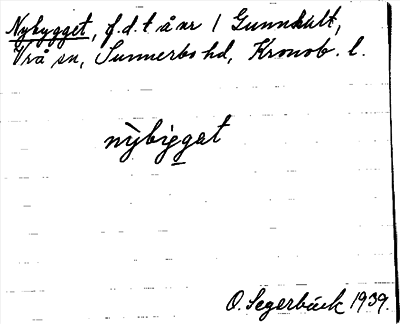 Nybygget, f.d.t. å nr 1 Gunnhult,
Vrå sn, Sunnerbo hd, Kronob. l.
nỳbiggat
O. Segerbäck 1939.